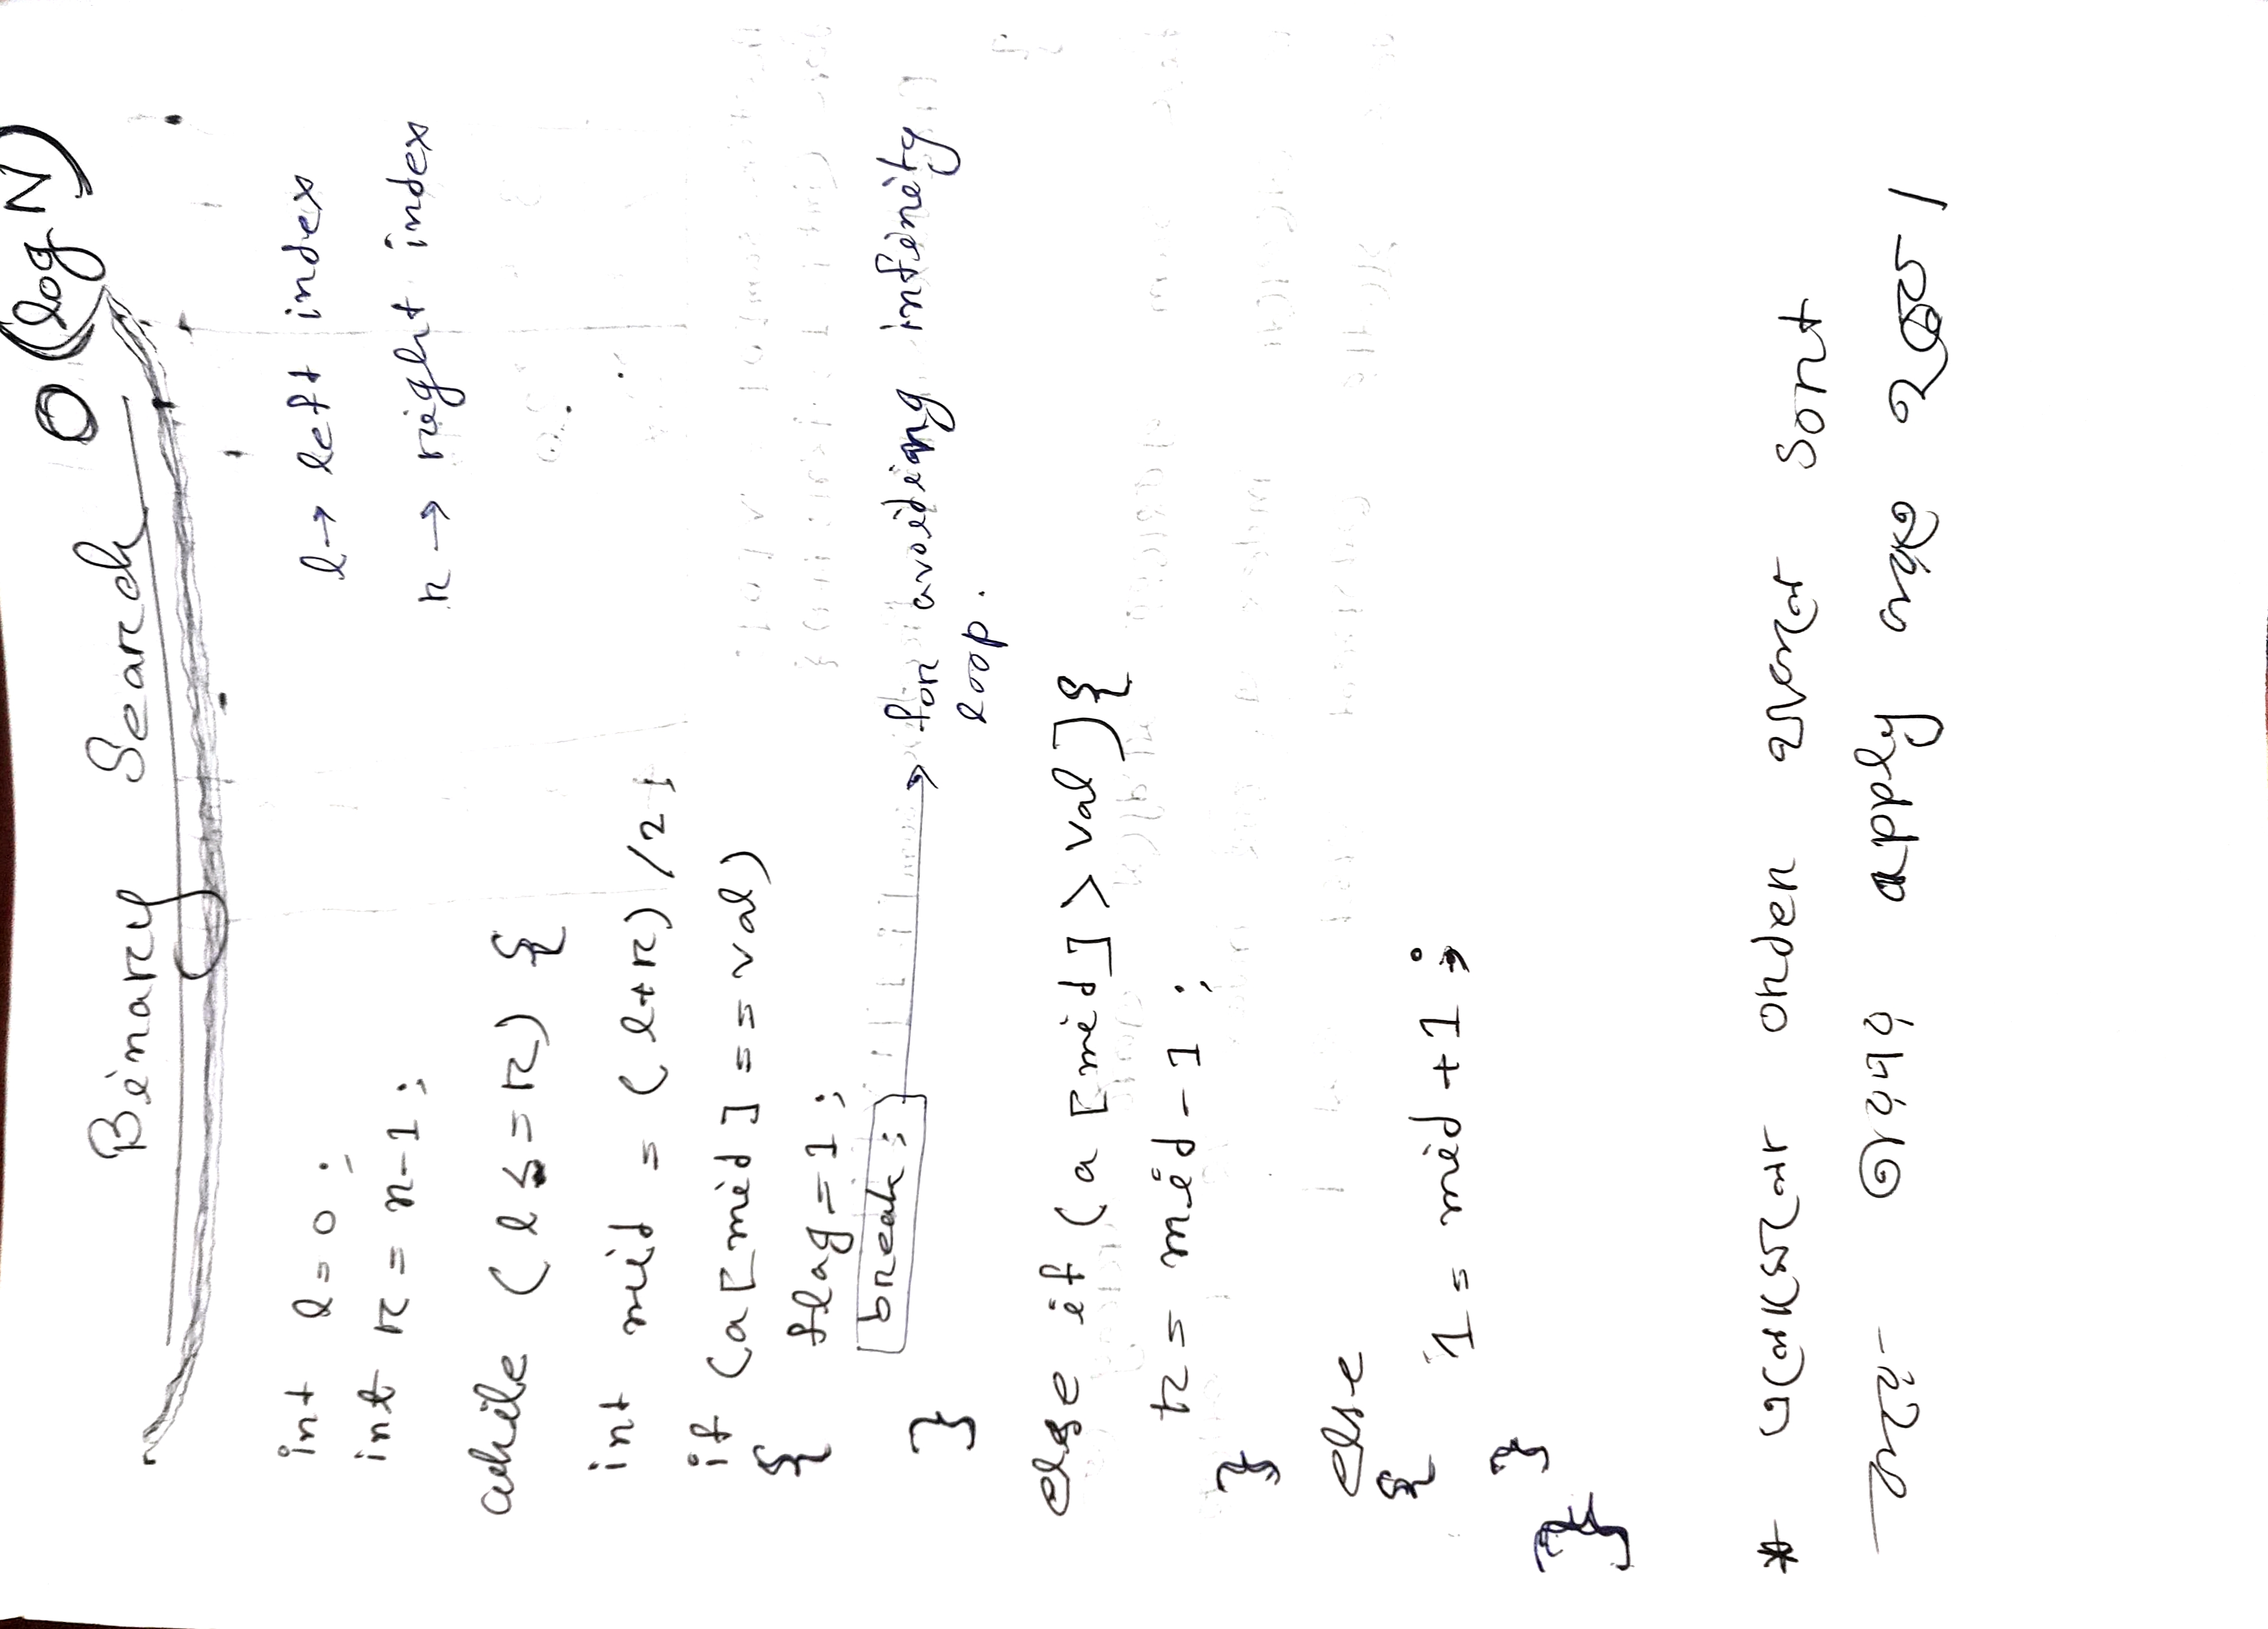 Binary Search O(log N)
int l=0;
int r=n-1;
l→ left index
r → right index
while (l<=r) {
int mid = (l+r)/2;
if (a[mid]==val)
{ flag=1;
break; → for avoiding infinity
loop.
}
else if (a[mid]>val]{
r= mid-1;
}
else
{ 1= mid+1;
}
}
* এলোমেলো order থাকলে sort
করে তারপর apply করতে হবে।